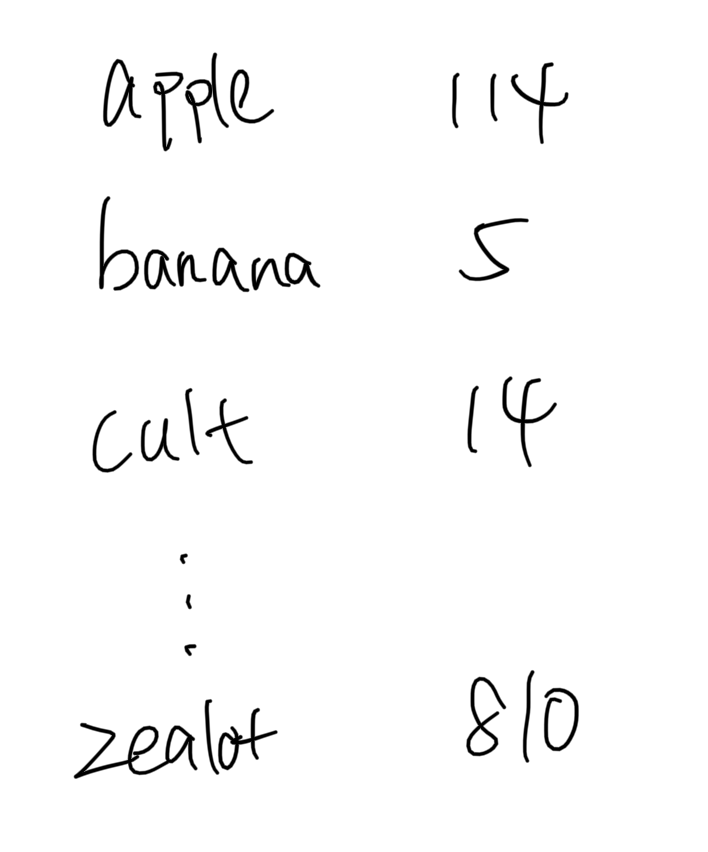 apple 114
banana 5
cult 14
⋮
zealot 810